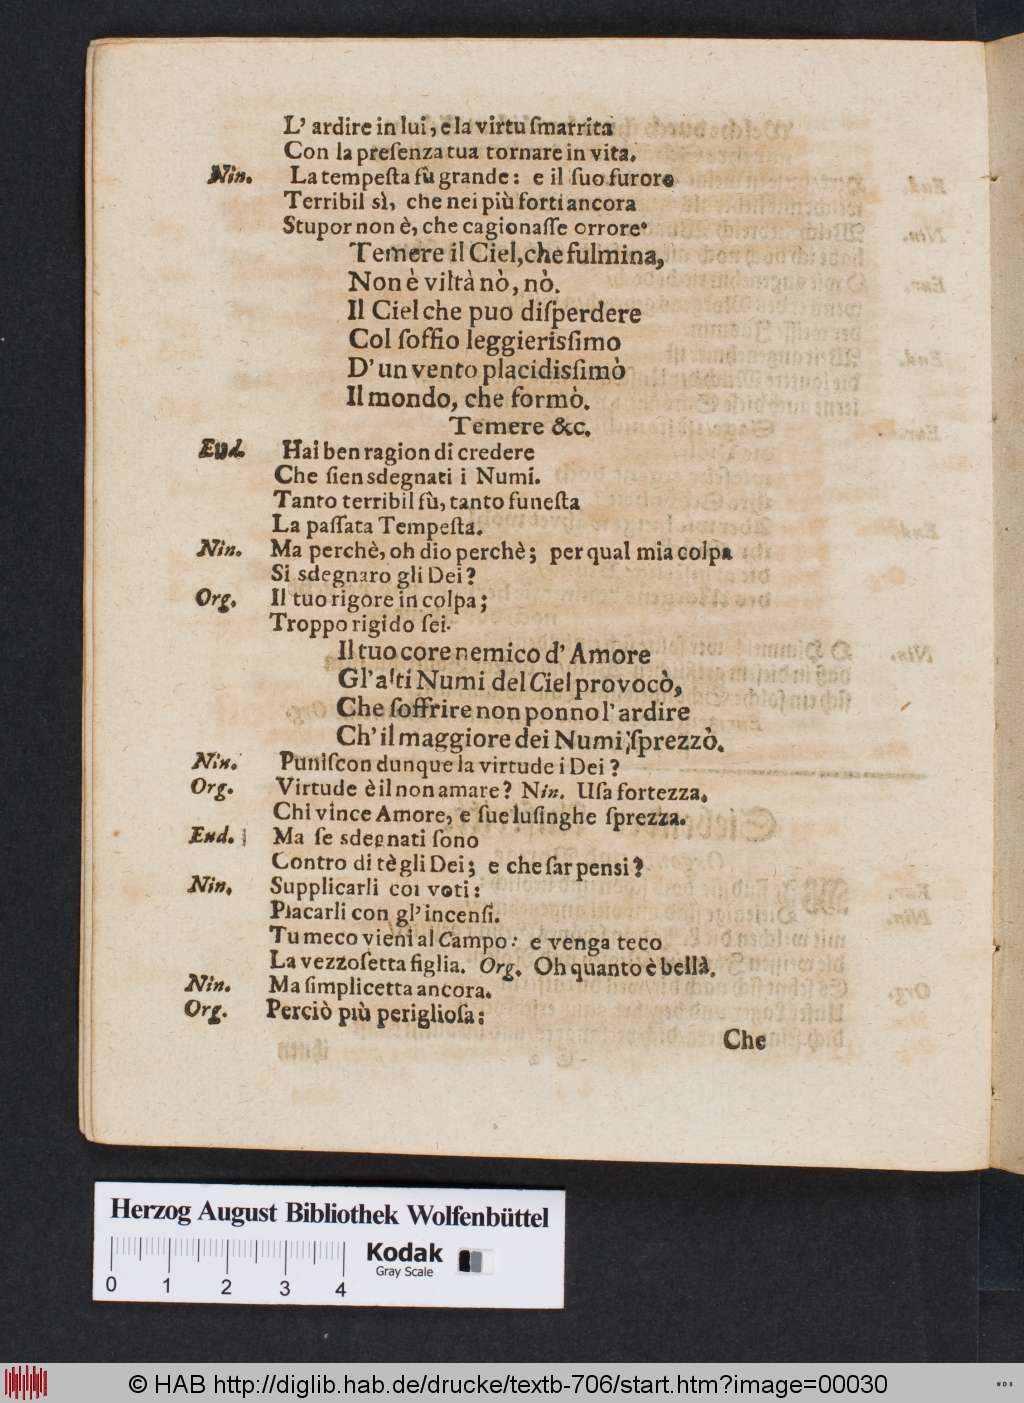 L' ardire in lui, e la virtu ſmarrita
Con la preſenza tua tornare in vita.
Nin. La tempeſta fù grande: e il ſuo furore
Terribil sì, che nei più forti ancora
Stupor non è, che cagionaſſe orrore.
Temere il Ciel, che fulmina,
Non è viltà nò, nò.
Il Ciel che puo diſperdere
Col ſoffio leggierisſimo
D' un vento placidisſimò
Il mondo, che formò.
Temere &c.
Eud. Hai ben ragion di credere
Che ſien sdegnati i Numi.
Tanto terribil fù, tanto funeſta
La paſſata Tempeſta.
Nin. Ma perchè, oh dio perchè; per qual mia colpa
Si sdegnaro gli Dei?
Org. Il tuo rigore in colpa;
Troppo rigido ſei.
Il tuo core nemico d' Amore
Gl' alti Numi del Ciel provocò,
Che ſoffrire non ponno l' ardire
Ch' il maggiore dei Numi ſprezzò.
Nin. Puniſcon dunque la virtude i Dei?
Org. Virtude è il non amare? Nin. Uſa fortezza,
Chi vince Amore, e ſue luſinghe ſprezza.
Eud. Ma ſe sdegnati ſono
Contro di tè gli Dei; e che far penſi?
Nin. Supplicarli coi voti:
Placarli con gl' incenſi.
Tu meco vieni al Campo: e venga teco
La vezzoſetta figlia. Org. Oh quanto è bellà.
Nin. Ma ſimplicetta ancora.
Org. Perciò più periglioſa:
Che
Herzog August Bibliothek Wolfenbüttel
0 1 2 3 4
Kodak
Gray Scale
© HAB http://diglib.hab.de/drucke/textb-706/start.htm?image=00030